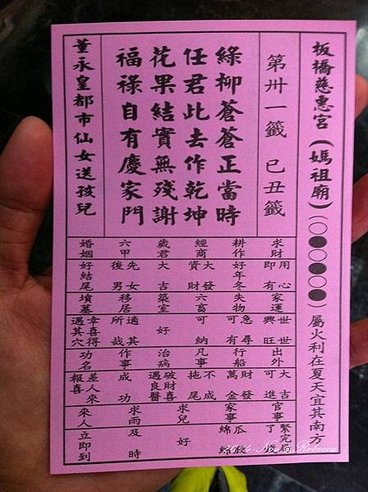 板橋慈惠宮（媽祖廟）屬火利在夏天宜其南方
第卅一籤 己丑籤
綠柳蒼蒼正當時
任君此去作乾坤
花果結實無殘謝
福祿自有慶家門
董永皇都市仙女送孩兒
求財 用心即有
耕作 好年冬
經商 大
歲君 大吉
六甲 先女後男
婚姻 好結尾
家運 世世興旺
失物 急尋可有
六畜 可納
築室 好
移居 所適其哉
墳墓 幸喜得遇其穴
出外 大吉可進
行船 萬金財發
凡事 不成拖尾
治病 破財遇良醫
作事 成功
功名 差人來報喜
官事 緊完局了錢
家事
求兒 好
求雨 及時
來人 立即到